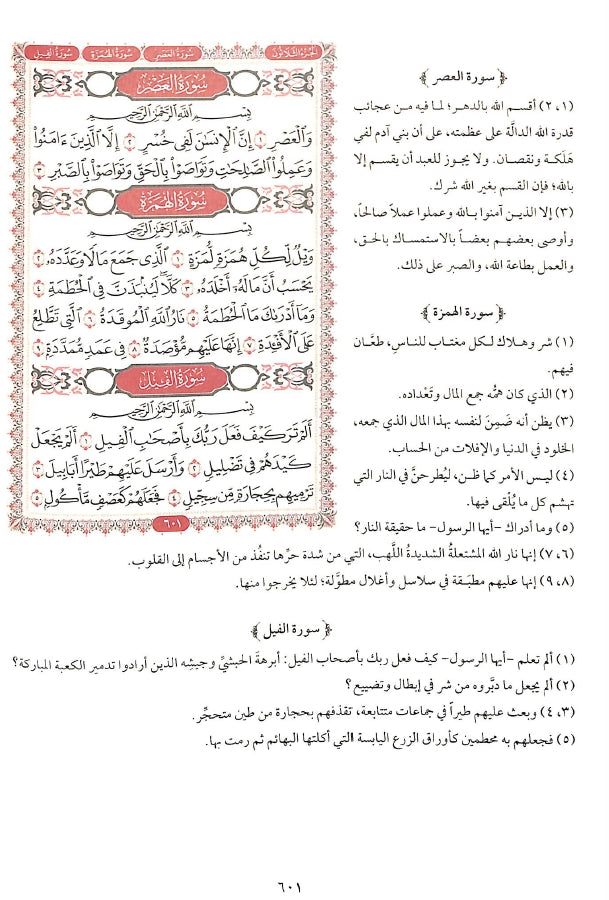 الجزء الثلاثون
سورة العصر
سورة الهمزة
سورة الفيل
سورة العصر
بسم الله الرحمن الرحيم
وَالْعَصْرِ ١ إِنَّ الْإِنسَانَ لَفِي خُسْرٍ ٢ إِلَّا الَّذِينَ ءَامَنُوا
وَعَمِلُوا الصَّالِحَاتِ وَتَوَاصَوْا بِالْحَقِّ وَتَوَاصَوْا بِالصَّبْرِ ٣
سورة الهمزة
بسم الله الرحمن الرحيم
وَيْلٌ لِّكُلِّ هُمَزَةٍ لُّمَزَةٍ ١ الَّذِي جَمَعَ مَالًا وَعَدَّدَهُ ٢
يَحْسَبُ أَنَّ مَالَهُ أَخْلَدَهُ ٣ كَلَّا لَيُنبَذَنَّ فِي الْحُطَمَةِ ٤
وَمَا أَدْرَاكَ مَا الْحُطَمَةُ ٥ نَارُ اللَّهِ الْمُوقَدَةُ ٦ الَّتِي تَطَّلِعُ
عَلَى الْأَفْئِدَةِ ٧ إِنَّهَا عَلَيْهِم مُّؤْصَدَةٌ ٨ فِي عَمَدٍ مُّمَدَّدَةٍ ٩
سورة الفيل
بسم الله الرحمن الرحيم
أَلَمْ تَرَ كَيْفَ فَعَلَ رَبُّكَ بِأَصْحَابِ الْفِيلِ ١ أَلَمْ يَجْعَلْ
كَيْدَهُمْ فِي تَضْلِيلٍ ٢ وَأَرْسَلَ عَلَيْهِمْ طَيْرًا أَبَابِيلَ ٣
تَرْمِيهِم بِحِجَارَةٍ مِّن سِجِّيلٍ ٤ فَجَعَلَهُمْ كَعَصْفٍ مَّأْكُولٍ ٥
٦٠١
﴿ سورة العصر ﴾
(١، ٢) أقسم الله بالدهر؛ لما فيه من عجائب
قدرة الله الدالَّة على عظمته، على أن بني آدم لفي
هَلَكة ونقصان. ولا يجوز للعبد أن يقسم إلا
بالله؛ فإن القسم بغير الله شرك.
(٣) إلا الذين آمنوا بالله وعملوا عملاً صالحاً،
وأوصى بعضهم بعضاً بالاستمساك بالحق،
والعمل بطاعة الله، والصبر على ذلك.
﴿ سورة الهمزة ﴾
(١) شر وهلاك لكل مغتاب للناس، طعَّان
فيهم.
(٢) الذي كان همُّه جمع المال وتَعْداده.
(٣) يظن أنه ضَمِنَ لنفسه بهذا المال الذي جمعه،
الخلود في الدنيا والإفلات من الحساب.
(٤) ليس الأمر كما ظن، ليُطرحنَّ في النار التي
تهشم كل ما يُلقى فيها.
(٥) وما أدراك -أيها الرسول- ما حقيقة النار؟
(٦، ٧) إنها نار الله المشتعلةُ الشديدةُ اللَّهب، التي من شدة حرِّها تنفُذ من الأجسام إلى القلوب.
(٨، ٩) إنها عليهم مطبَقة في سلاسل وأغلال مطوَّلة؛ لئلا يخرجوا منها.
﴿ سورة الفيل ﴾
(١) ألم تعلم -أيها الرسول- كيف فعل ربك بأصحاب الفيل: أبرهةَ الحبشيِّ وجيشِه الذين أرادوا تدمير الكعبة المباركة؟
(٢) ألم يجعل ما دبَّروه من شر في إبطال وتضييع؟
(٣، ٤) وبعث عليهم طيراً في جماعات متتابعة، تقذفهم بحجارة من طين متحجِّر.
(٥) فجعلهم به محطمين كأوراق الزرع اليابسة التي أكلتها البهائم ثم رمت بها.
٦٠١